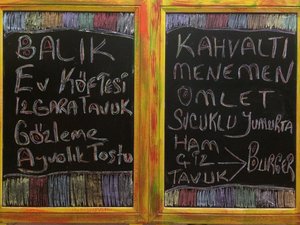 BALIK
Ev KÖFTESİ
IZGARA TAVUK
Gözleme
Ayvalık Tostu
KAHVALTI
MENEMEN
OMLET
SUCUKLU YUMURTA
HAM
ÇIZ
TAVUK
BURGER